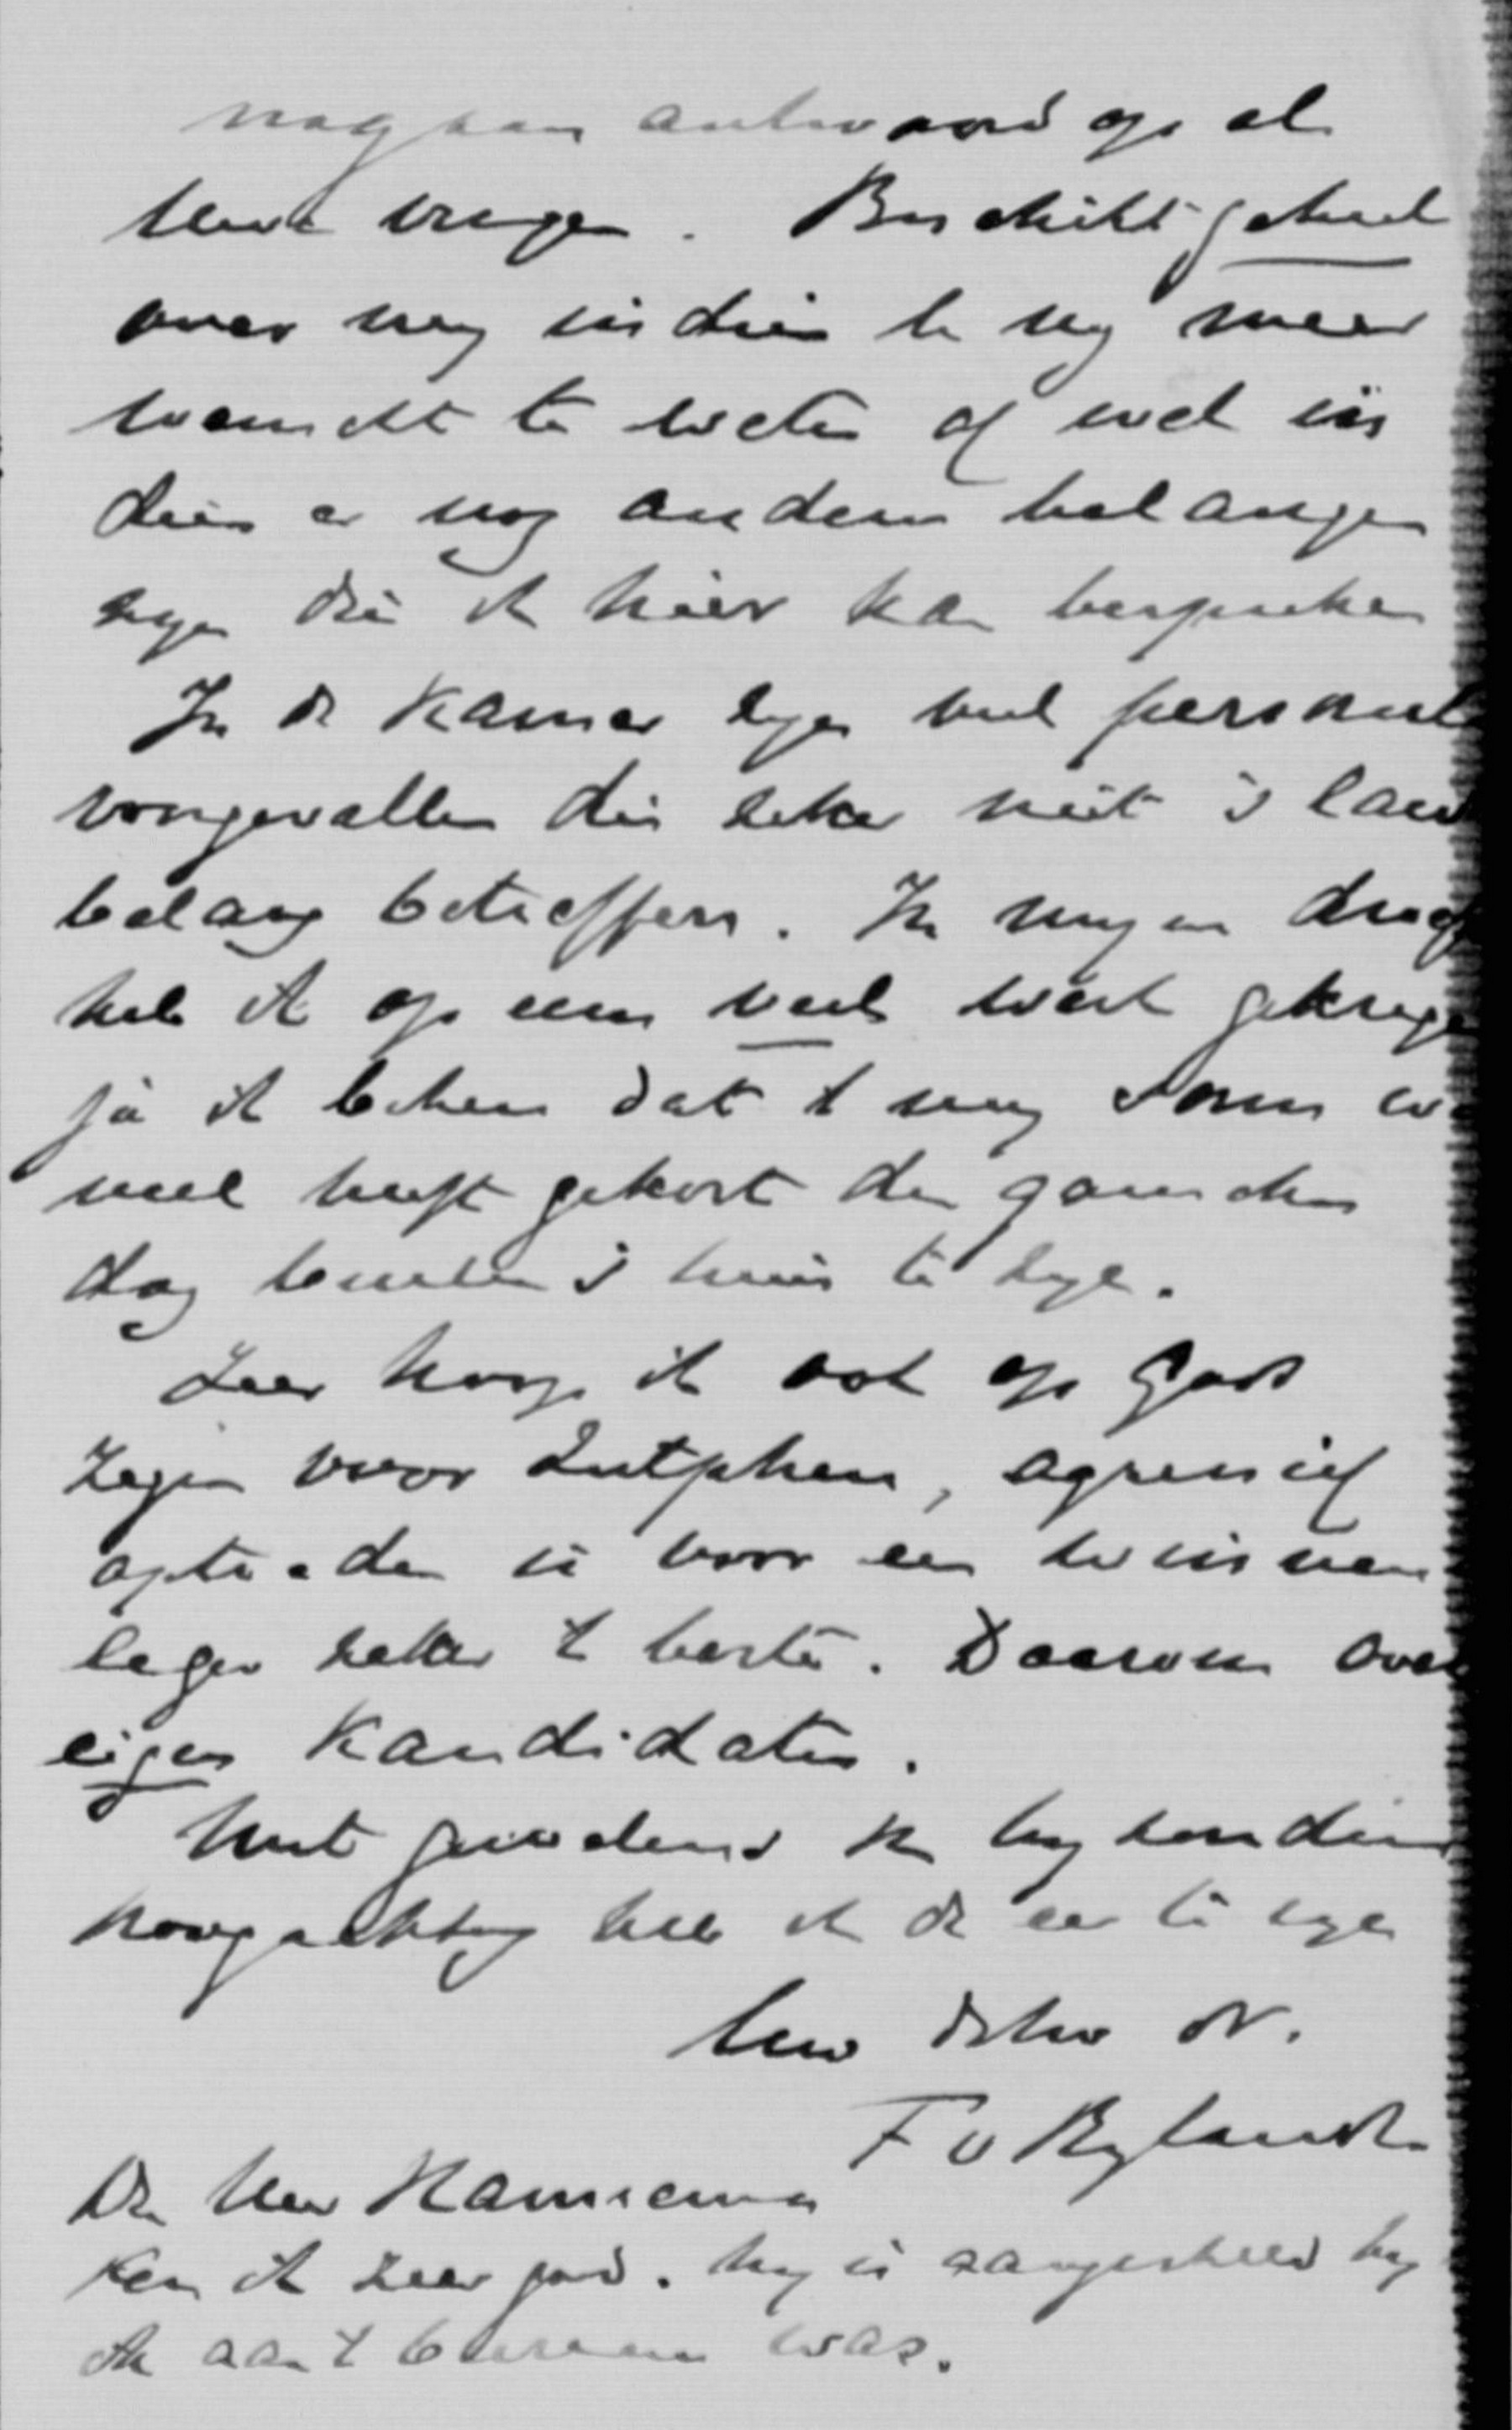 antwoord op al
Uwe vragen. Beschikt geheel
over my indien U nog meer
wenscht te weten of wel in
dien er nog andere belangen
zyn die ik hier kan bespreken
In de Kamer zyn veel personeele
voorgevallen die zeker niet 's lands
belang betreffen. In myn
heb ik op eens veel werk gekregen
ja ik beken dat 't my soms
veel heeft gekost den ganschen
dag buiten 's huis te zyn.
Zeer hoop ik ook op Gods
zegen voor Zutphen, agressief
optreden is voor een winnend
leger zeker 't beste. Daarom
eigen Kandidaten.
Met gevoelens van byzondere
hoogachting heb ik de eer te zyn
Uw dw dr.
F v Bylandt
De Heer Hamsema
Ken ik zeer goed. hy is aangesteld
ik aan 't bureau was.